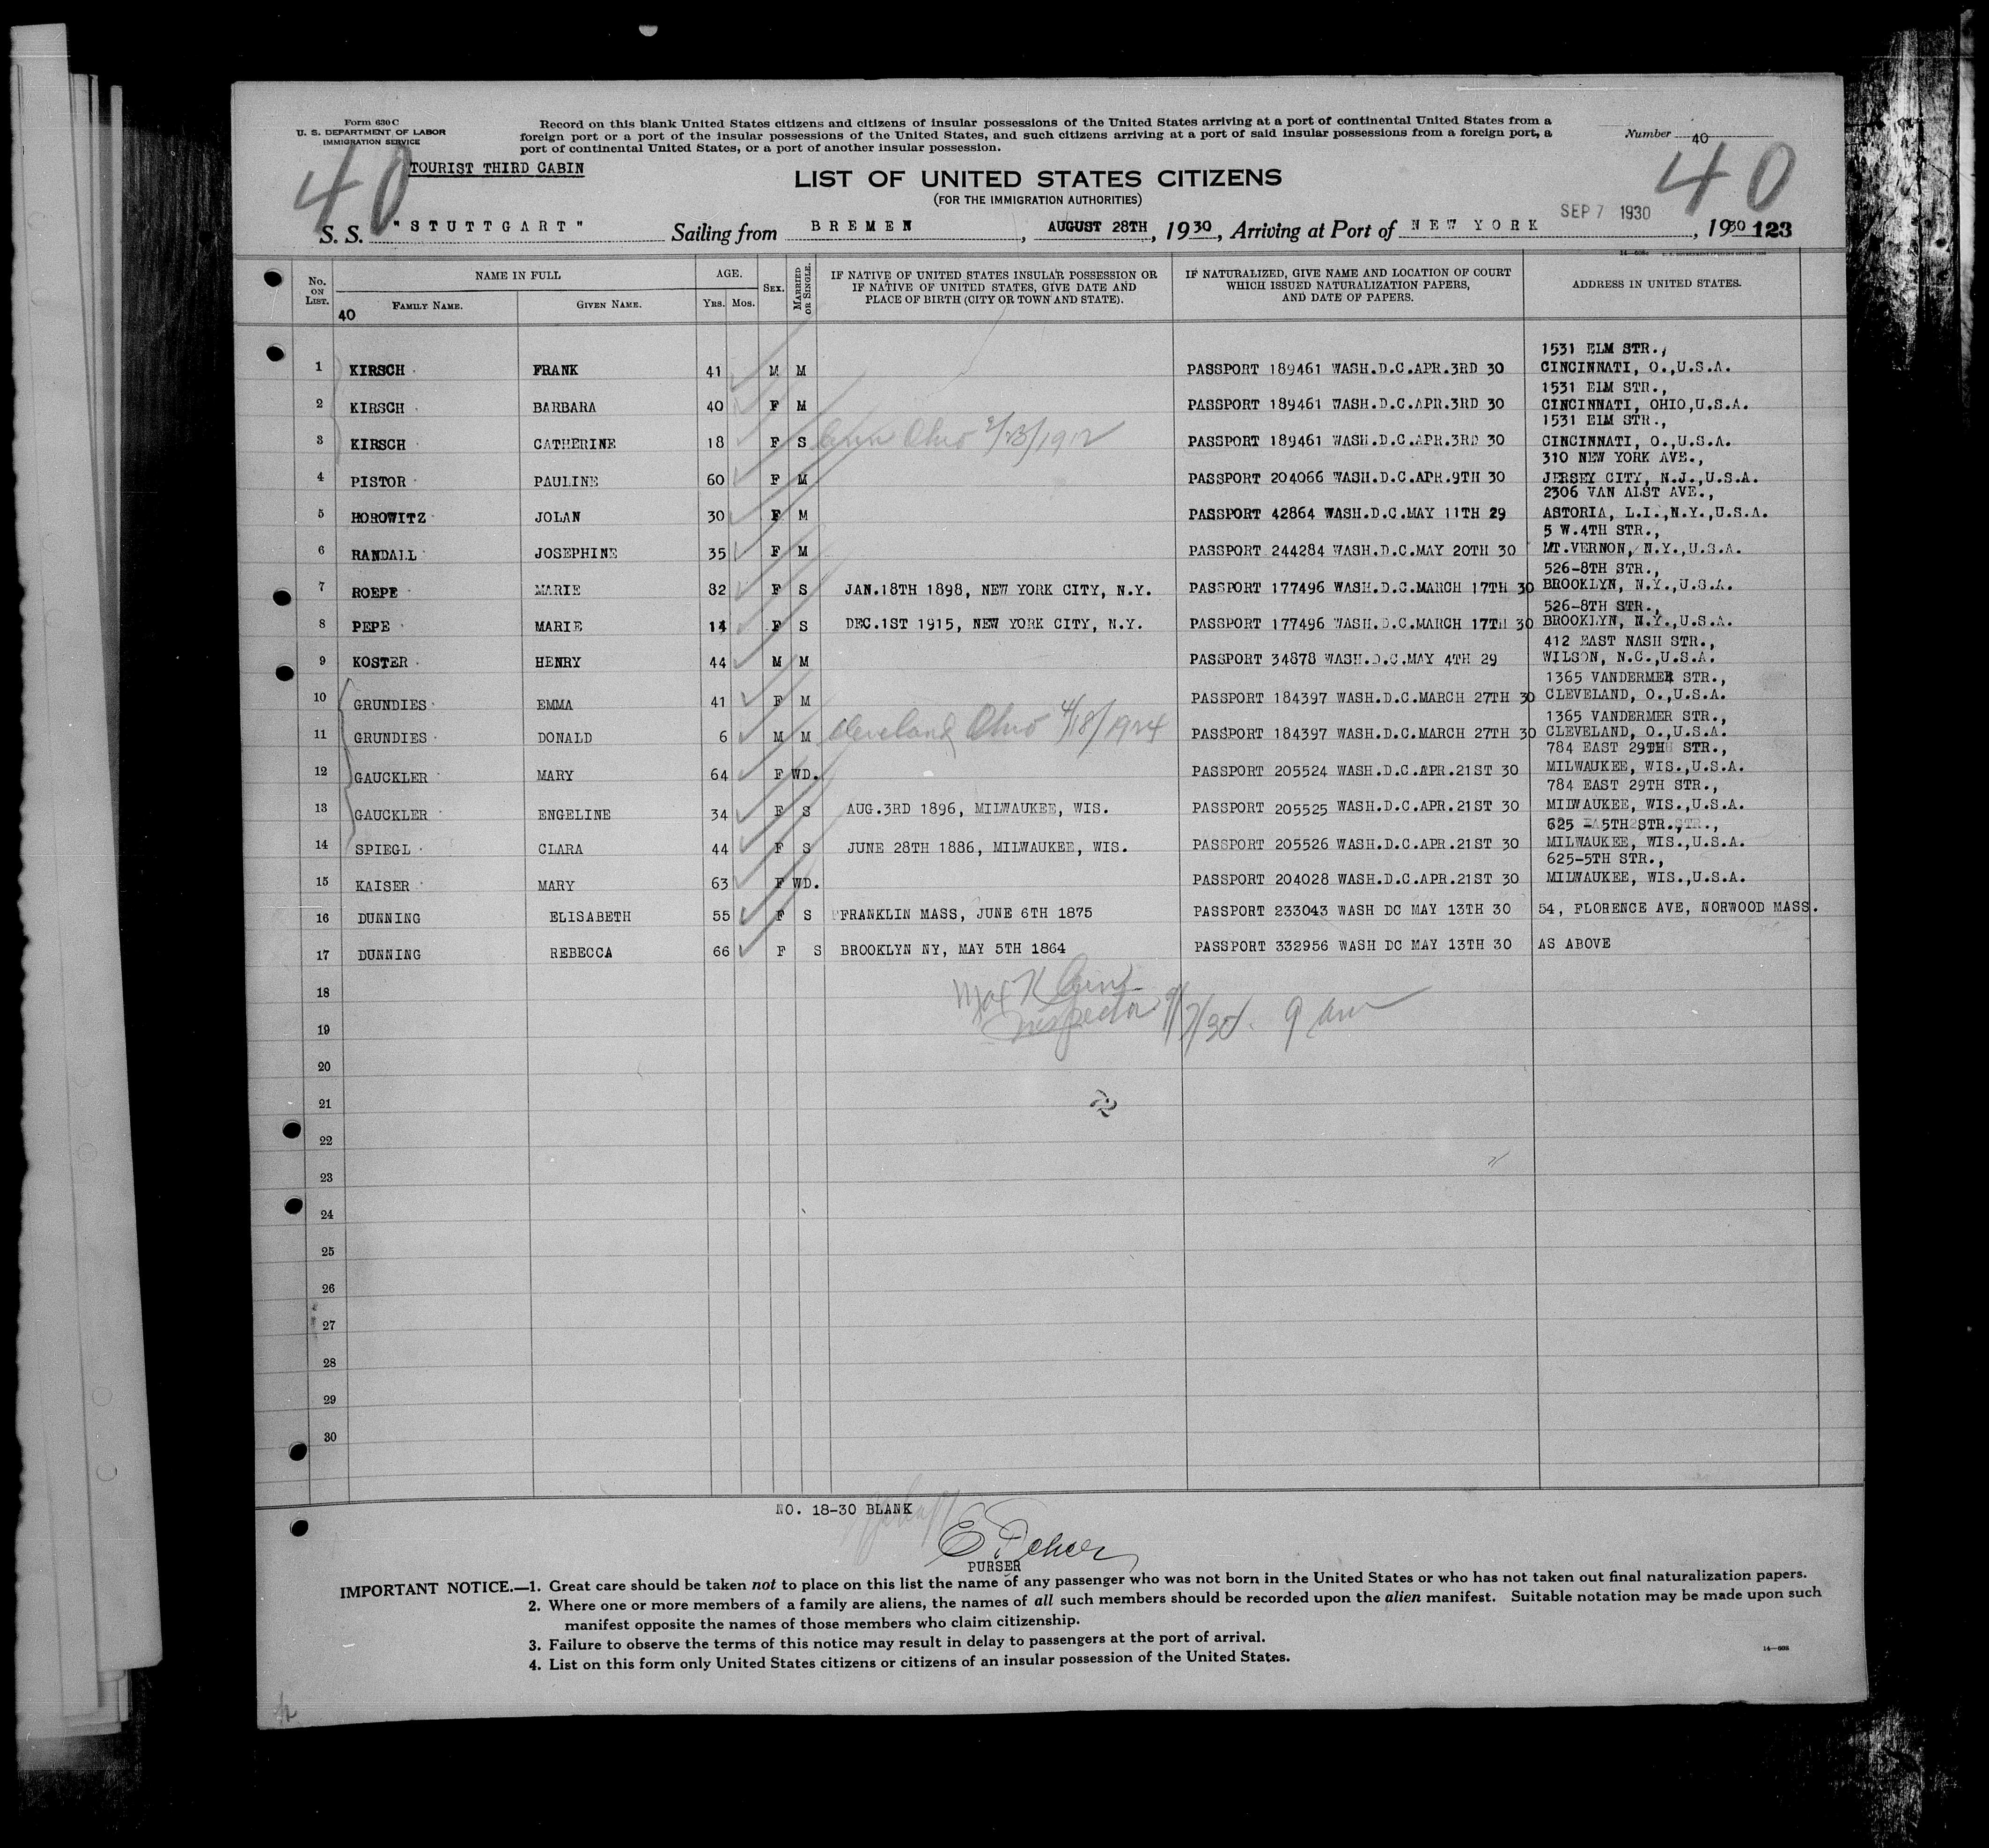 Form 630 C
U. S. DEPARTMENT OF LABOR
IMMIGRATION SERVICE
Record on this blank United States citizens and citizens of insular possessions of the United States arriving at a port of continental United States from a
foreign port or a port of the insular possessions of the United States, and such citizens arriving at a port of said insular possessions from a foreign port, a
port of continental United States, or a port of another insular possession.
Number 40
40
TOURIST THIRD CABIN
40
LIST OF UNITED STATES CITIZENS
(FOR THE IMMIGRATION AUTHORITIES)
SEP 7 1930
S. S. "STUTTGART" Sailing from BREMEN, AUGUST 28TH, 1930, Arriving at Port of NEW YORK, 1930 123
No. ON LIST.
NAME IN FULL
40 FAMILY NAME. GIVEN NAME.
AGE. YRS. MOS.
SEX.
MARRIED OR SINGLE.
IF NATIVE OF UNITED STATES INSULAR POSSESSION OR
IF NATIVE OF UNITED STATES, GIVE DATE AND
PLACE OF BIRTH (CITY OR TOWN AND STATE).
IF NATURALIZED, GIVE NAME AND LOCATION OF COURT
WHICH ISSUED NATURALIZATION PAPERS,
AND DATE OF PAPERS.
ADDRESS IN UNITED STATES.
1531 ELM STR.,
1 KIRSCH FRANK 41 M M PASSPORT 189461 WASH.D.C.APR.3RD 30 CINCINNATI, O.,U.S.A.
1531 ELM STR.,
2 KIRSCH BARBARA 40 F M PASSPORT 189461 WASH.D.C.APR.3RD 30 CINCINNATI, OHIO,U.S.A.
1531 ELM STR.,
3 KIRSCH CATHERINE 18 F S Ohio /23/1912 PASSPORT 189461 WASH.D.C.APR.3RD 30 CINCINNATI, O.,U.S.A.
310 NEW YORK AVE.,
4 PISTOR PAULINE 60 F M PASSPORT 204066 WASH.D.C.APR.9TH 30 JERSEY CITY, N.J.,U.S.A.
2306 VAN ALST AVE.,
5 HOROWITZ JOLAN 30 F M PASSPORT 42864 WASH.D.C.MAY 11TH 29 ASTORIA, L.I.,N.Y.,U.S.A.
5 W.4TH STR.,
6 RANDALL JOSEPHINE 35 F M PASSPORT 244284 WASH.D.C.MAY 20TH 30 MT.VERNON, N.Y.,U.S.A.
526-8TH STR.,
7 ROEPE MARIE 32 F S JAN.18TH 1898, NEW YORK CITY, N.Y. PASSPORT 177496 WASH.D.C.MARCH 17TH 30 BROOKLYN, N.Y.,U.S.A.
526-8TH STR.,
8 PEPE MARIE 14 F S DEC.1ST 1915, NEW YORK CITY, N.Y. PASSPORT 177496 WASH.D.C.MARCH 17TH 30 BROOKLYN, N.Y.,U.S.A.
412 EAST NASH STR.,
9 KOSTER HENRY 44 M M PASSPORT 34878 WASH.D.C.MAY 4TH 29 WILSON, N.C.,U.S.A.
1365 VANDERMER STR.,
10 GRUNDIES EMMA 41 F M PASSPORT 184397 WASH.D.C.MARCH 27TH 30 CLEVELAND, O.,U.S.A.
1365 VANDERMER STR.,
11 GRUNDIES DONALD 6 M M Cleveland Ohio 4/18/1924 PASSPORT 184397 WASH.D.C.MARCH 27TH 30 CLEVELAND, O.,U.S.A.
784 EAST 29TH STR.,
12 GAUCKLER MARY 64 F WD. PASSPORT 205524 WASH.D.C.APR.21ST 30 MILWAUKEE, WIS.,U.S.A.
784 EAST 29TH STR.,
13 GAUCKLER ENGELINE 34 F S AUG.3RD 1896, MILWAUKEE, WIS. PASSPORT 205525 WASH.D.C.APR.21ST 30 MILWAUKEE, WIS.,U.S.A.
625 -5TH STR.,
14 SPIEGL CLARA 44 F S JUNE 28TH 1886, MILWAUKEE, WIS. PASSPORT 205526 WASH.D.C.APR.21ST 30 MILWAUKEE, WIS.,U.S.A.
625-5TH STR.,
15 KAISER MARY 63 F WD. PASSPORT 204028 WASH.D.C.APR.21ST 30 MILWAUKEE, WIS.,U.S.A.
16 DUNNING ELISABETH 55 F S FRANKLIN MASS, JUNE 6TH 1875 PASSPORT 233043 WASH DC MAY 13TH 30 54, FLORENCE AVE, NORWOOD MASS.
17 DUNNING REBECCA 66 F S BROOKLYN NY, MAY 5TH 1864 PASSPORT 332956 WASH DC MAY 13TH 30 AS ABOVE
18
19 Inspector 9/7/30. 9 am
20
21
22
23
24
25
26
27
28
29
30
NO. 18-30 BLANK
PURSER
IMPORTANT NOTICE.—1. Great care should be taken not to place on this list the name of any passenger who was not born in the United States or who has not taken out final naturalization papers.
2. Where one or more members of a family are aliens, the names of all such members should be recorded upon the alien manifest. Suitable notation may be made upon such
manifest opposite the names of those members who claim citizenship.
3. Failure to observe the terms of this notice may result in delay to passengers at the port of arrival.
4. List on this form only United States citizens or citizens of an insular possession of the United States.